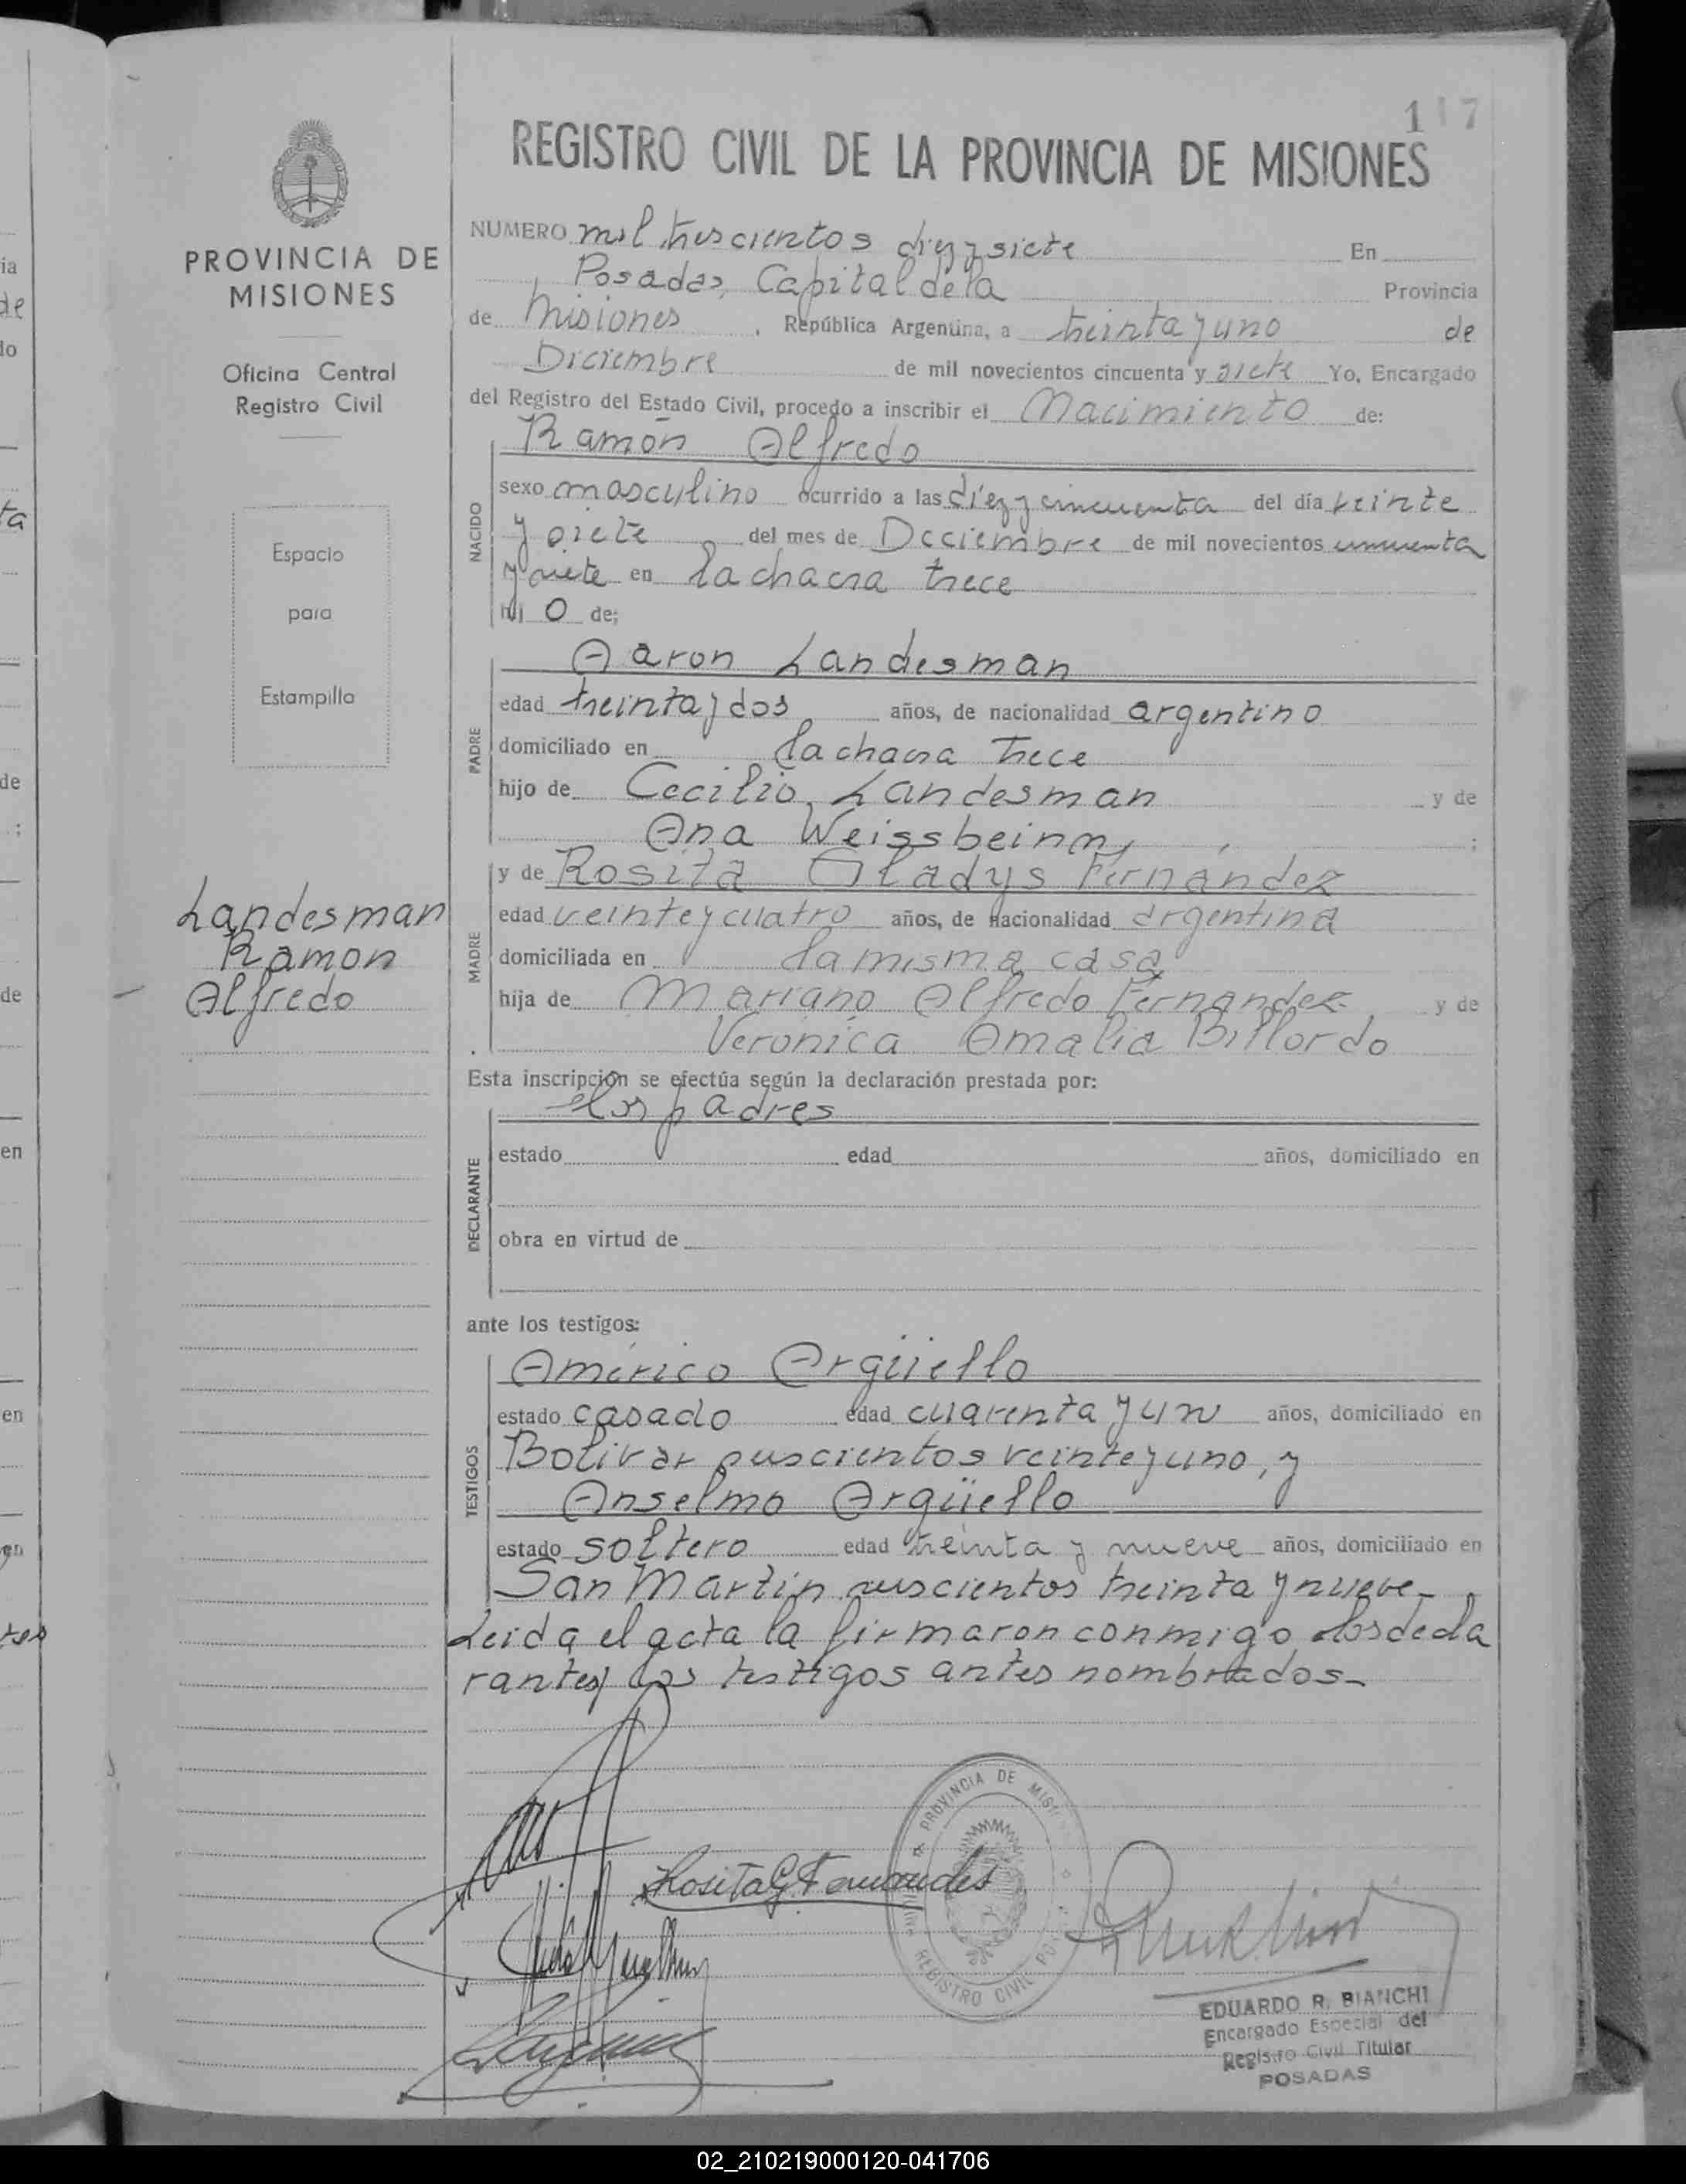 117
REGISTRO CIVIL DE LA PROVINCIA DE MISIONES
PROVINCIA DE
MISIONES
Oficina Central
Registro Civil
Espacio
para
Estampilla
Landesman
Ramon
Alfredo
NUMERO mil trescientos diez y siete En
Posadas, Capital de la Provincia
de Misiones, República Argentina, a treinta y uno de
Diciembre de mil novecientos cincuenta y siete Yo, Encargado
del Registro del Estado Civil, procedo a inscribir el Nacimiento de:
Ramón Alfredo
NACIDO
sexo masculino ocurrido a las diez y cincuenta del día veinte
y siete del mes de Diciembre de mil novecientos cincuenta
y siete en la chacra trece
hijo de;
Aaron Landesman
PADRE
edad treinta y dos años, de nacionalidad argentino
domiciliado en la chacra trece
hijo de Cecilio Landesman y de
Ana Weissbeinn, ;
y de Rosita Gladys Fernández
MADRE
edad veinte y cuatro años, de nacionalidad argentina
domiciliada en la misma casa
hija de Mariano Alfredo Fernandez, y de
Veronica Amalia Billordo
Esta inscripción se efectúa según la declaración prestada por:
los padres
DECLARANTE
estado edad años, domiciliado en
obra en virtud de
ante los testigos:
Américo Argüello
TESTIGOS
estado casado edad cuarenta y un años, domiciliado en
Bolivar veinte y uno, y
Anselmo Argüello
estado soltero edad treinta y nueve años, domiciliado en
San Martín treinta y nueve-
Leida el acta la firmaron conmigo los decla
rantes y los testigos antes nombrados-
Rosita G Fernandes
PROVINCIA DE MISI
REGISTRO CIVIL
EDUARDO R. BIANCHI
Encargado Especial del
Registro Civil Titular
POSADAS
02_210219000120-041706